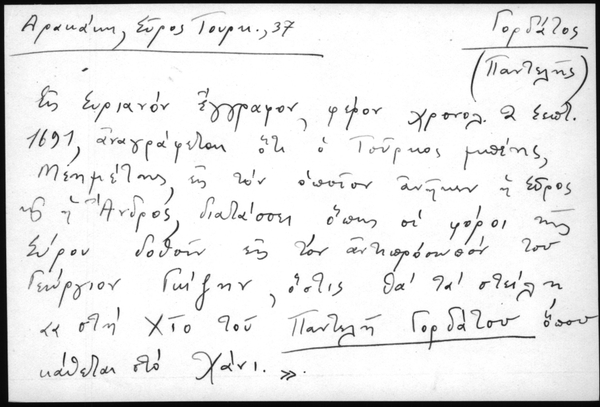 Δρακάκη, Σῦρος Τουρκ., 37
Γορδάτος
(Παντελῆς)
Εἰς Συριανόν ἔγγραφον, φέρον χρονολ. 2 Σεπτ.
1691, ἀναγράφεται ὅτι ὁ Τοῦρκος μπέης,
Μεημέτης, εἰς τόν ὁποῖον ἀνῆκεν ἡ Σῦρος
καί ἡ Ἄνδρος, διατάσσει ὅπως οἱ φόροι τῆς
Σύρου δοθοῦν εἰς τόν ἀντιπρόσωπόν του
Γεώργιον Γκίζην, ὅστις θά τά στείλη
στή Χίο τοῦ Παντελῆ Γορδάτου ὅπου
κάθεται στό Χάνι. ».